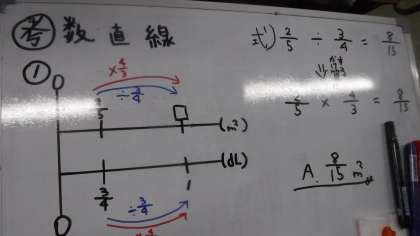 考 数直線
①
×4/3
÷3/4
2/5 □ (m²)
3/4 1 (dL)
÷3/4
×4/3
2/5 ÷ 3/4 = 8/15
2/5 × 4/3 = 8/15
A. 8/15 m²